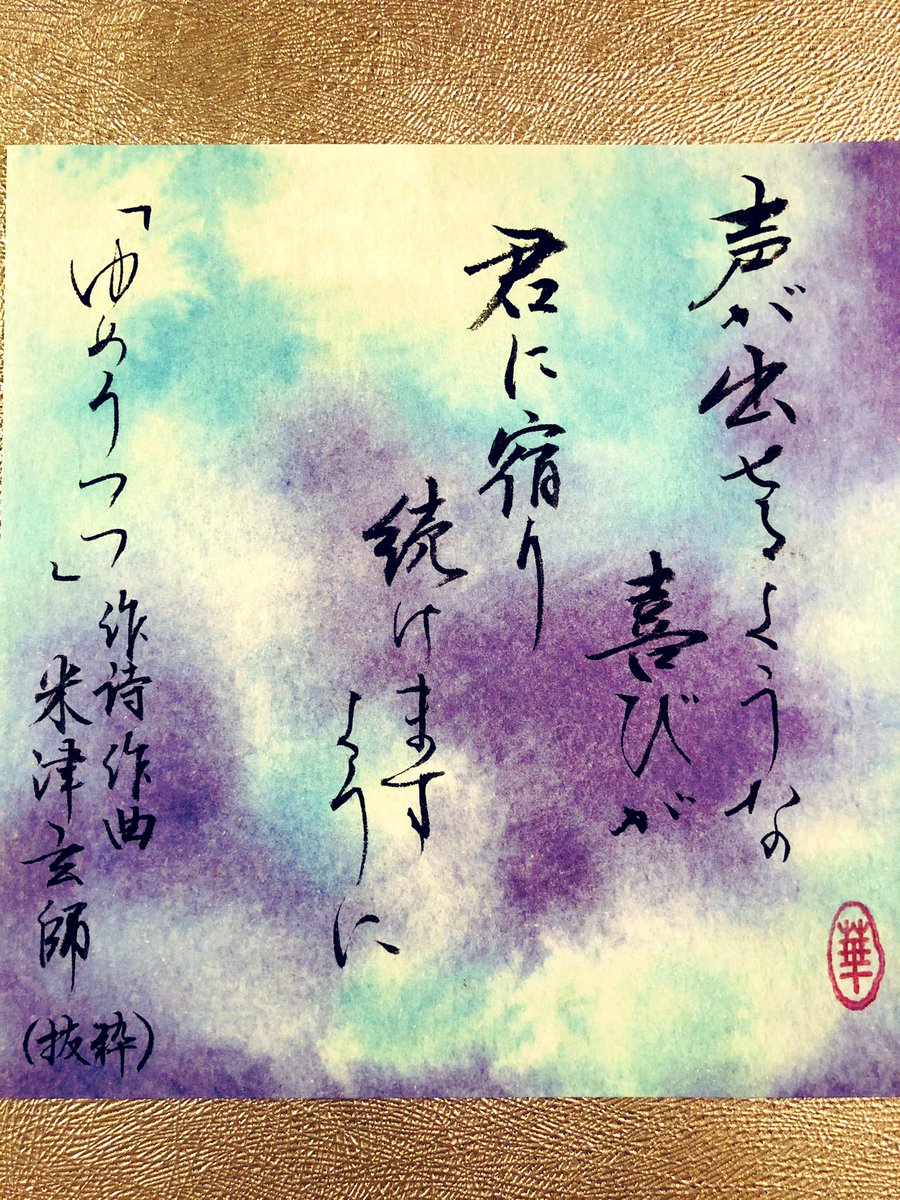 声が出せるような
喜びが
君に宿り
続けます
ように
「ゆめうつつ」
作詩作曲
米津玄師
(抜粋)
華